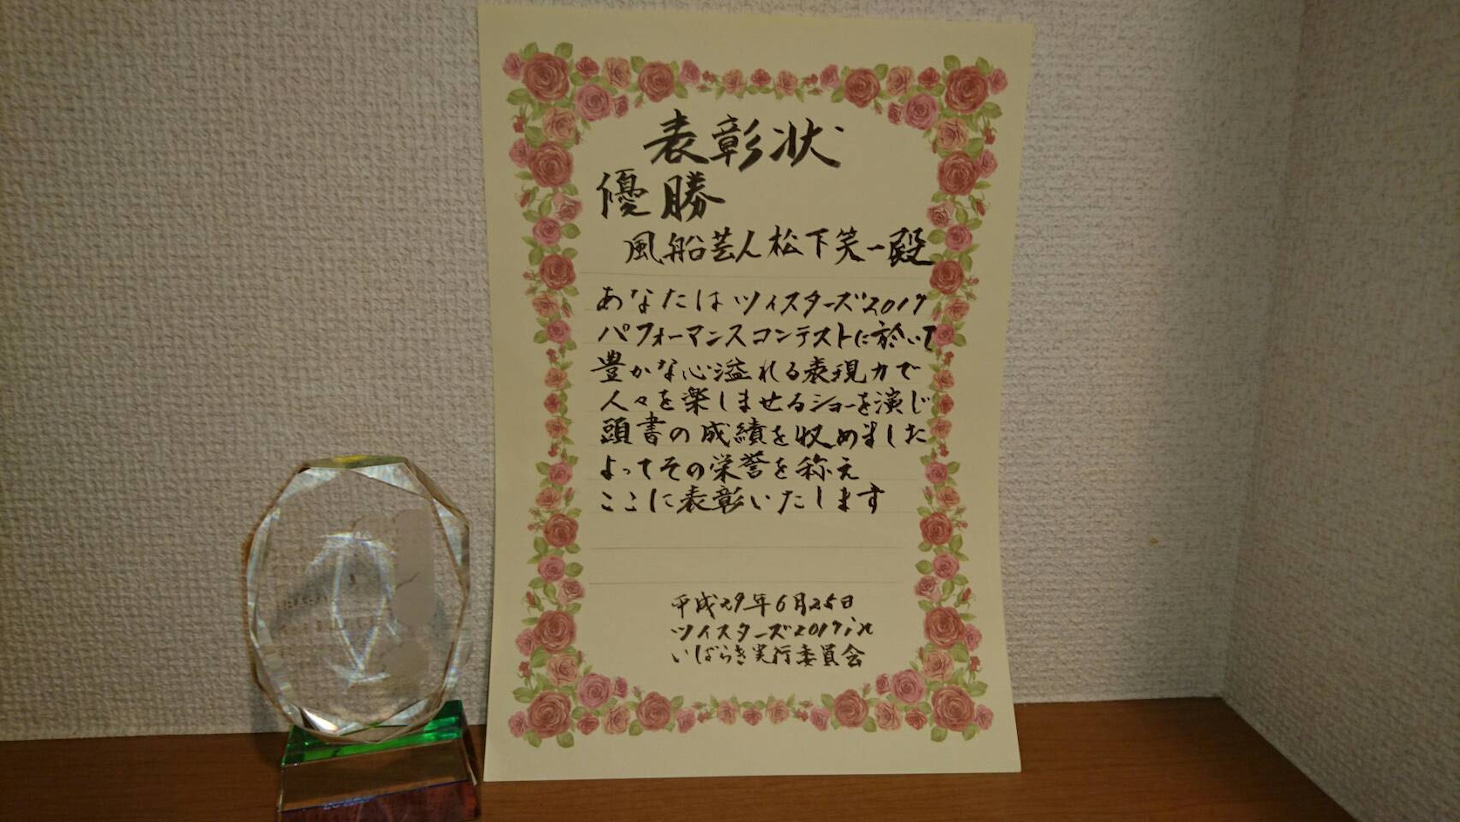 表彰状
優勝
風船芸人松下笑一殿
あなたはツイスターズ2017
パフォーマンスコンテストに於いて
豊かな心溢れる表現力で
人々を楽しませるショーを演じ
頭書の成績を収めました
よってその栄誉を称え
ここに表彰いたします
平成29年6月25日
ツイスターズ2017in
いばらき実行委員会